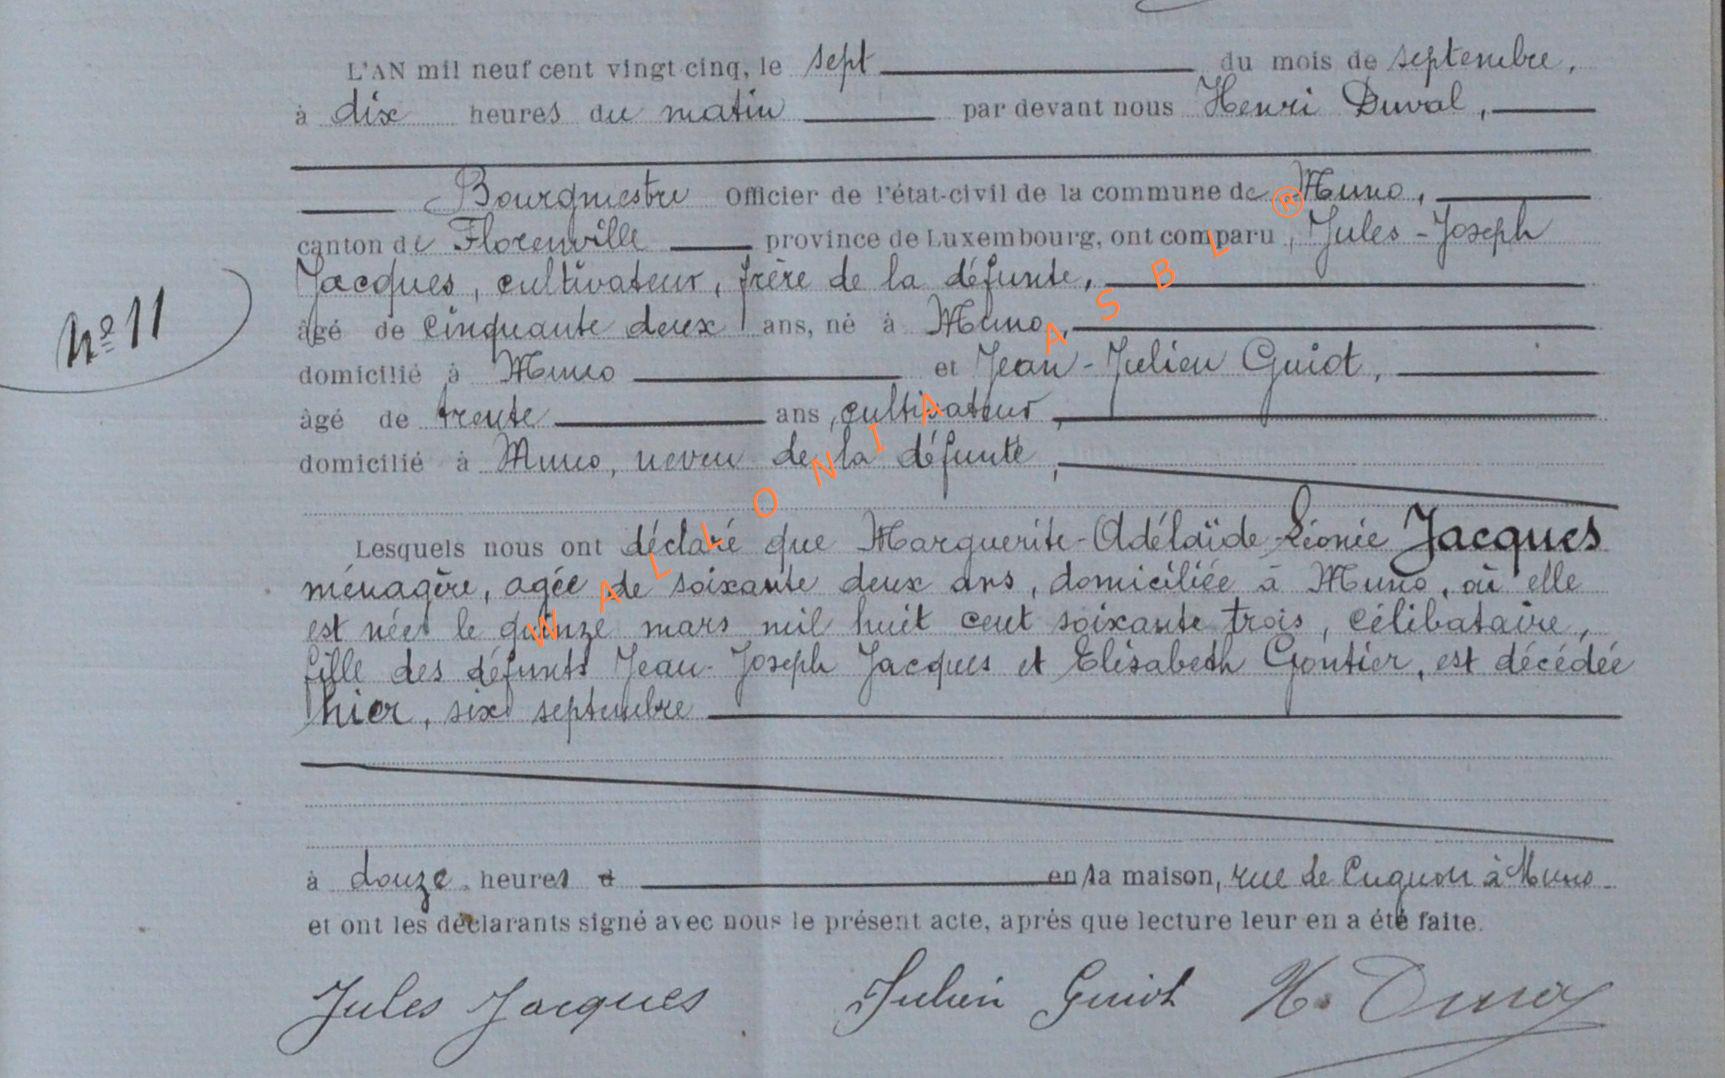 L'AN mil neuf cent vingt-cinq, le sept du mois de septembre,
à dix heures du matin par devant nous Henri Duval,
Bourgmestre Officier de l'état-civil de la commune de Muno,
canton de Florenville province de Luxembourg, ont comparu, Jules-Joseph
Jacques, cultivateur, frère de la défunte,
âgé de cinquante deux ans, né à Muno,
N° 11
domicilié à Muno et Jean-Julien Guiot,
âgé de trente ans, cultivateur,
domicilié à Muno, neveu de la défunte,
Lesquels nous ont déclaré que Marguerite-Adélaïde-Léonie Jacques
ménagère, agée de soixante deux ans, domiciliée à Muno, où elle
est née le quinze mars mil huit cent soixante trois, célibataire,
fille des défunts Jean-Joseph Jacques et Elisabeth Gontier, est décédée
hier, six septembre
à douze heures en sa maison, rue de Cugnon à Muno
et ont les déclarants signé avec nous le présent acte, après que lecture leur en a été faite.
Jules Jacques Julien Guiot H. Duval
WALLONIA ASBL ®